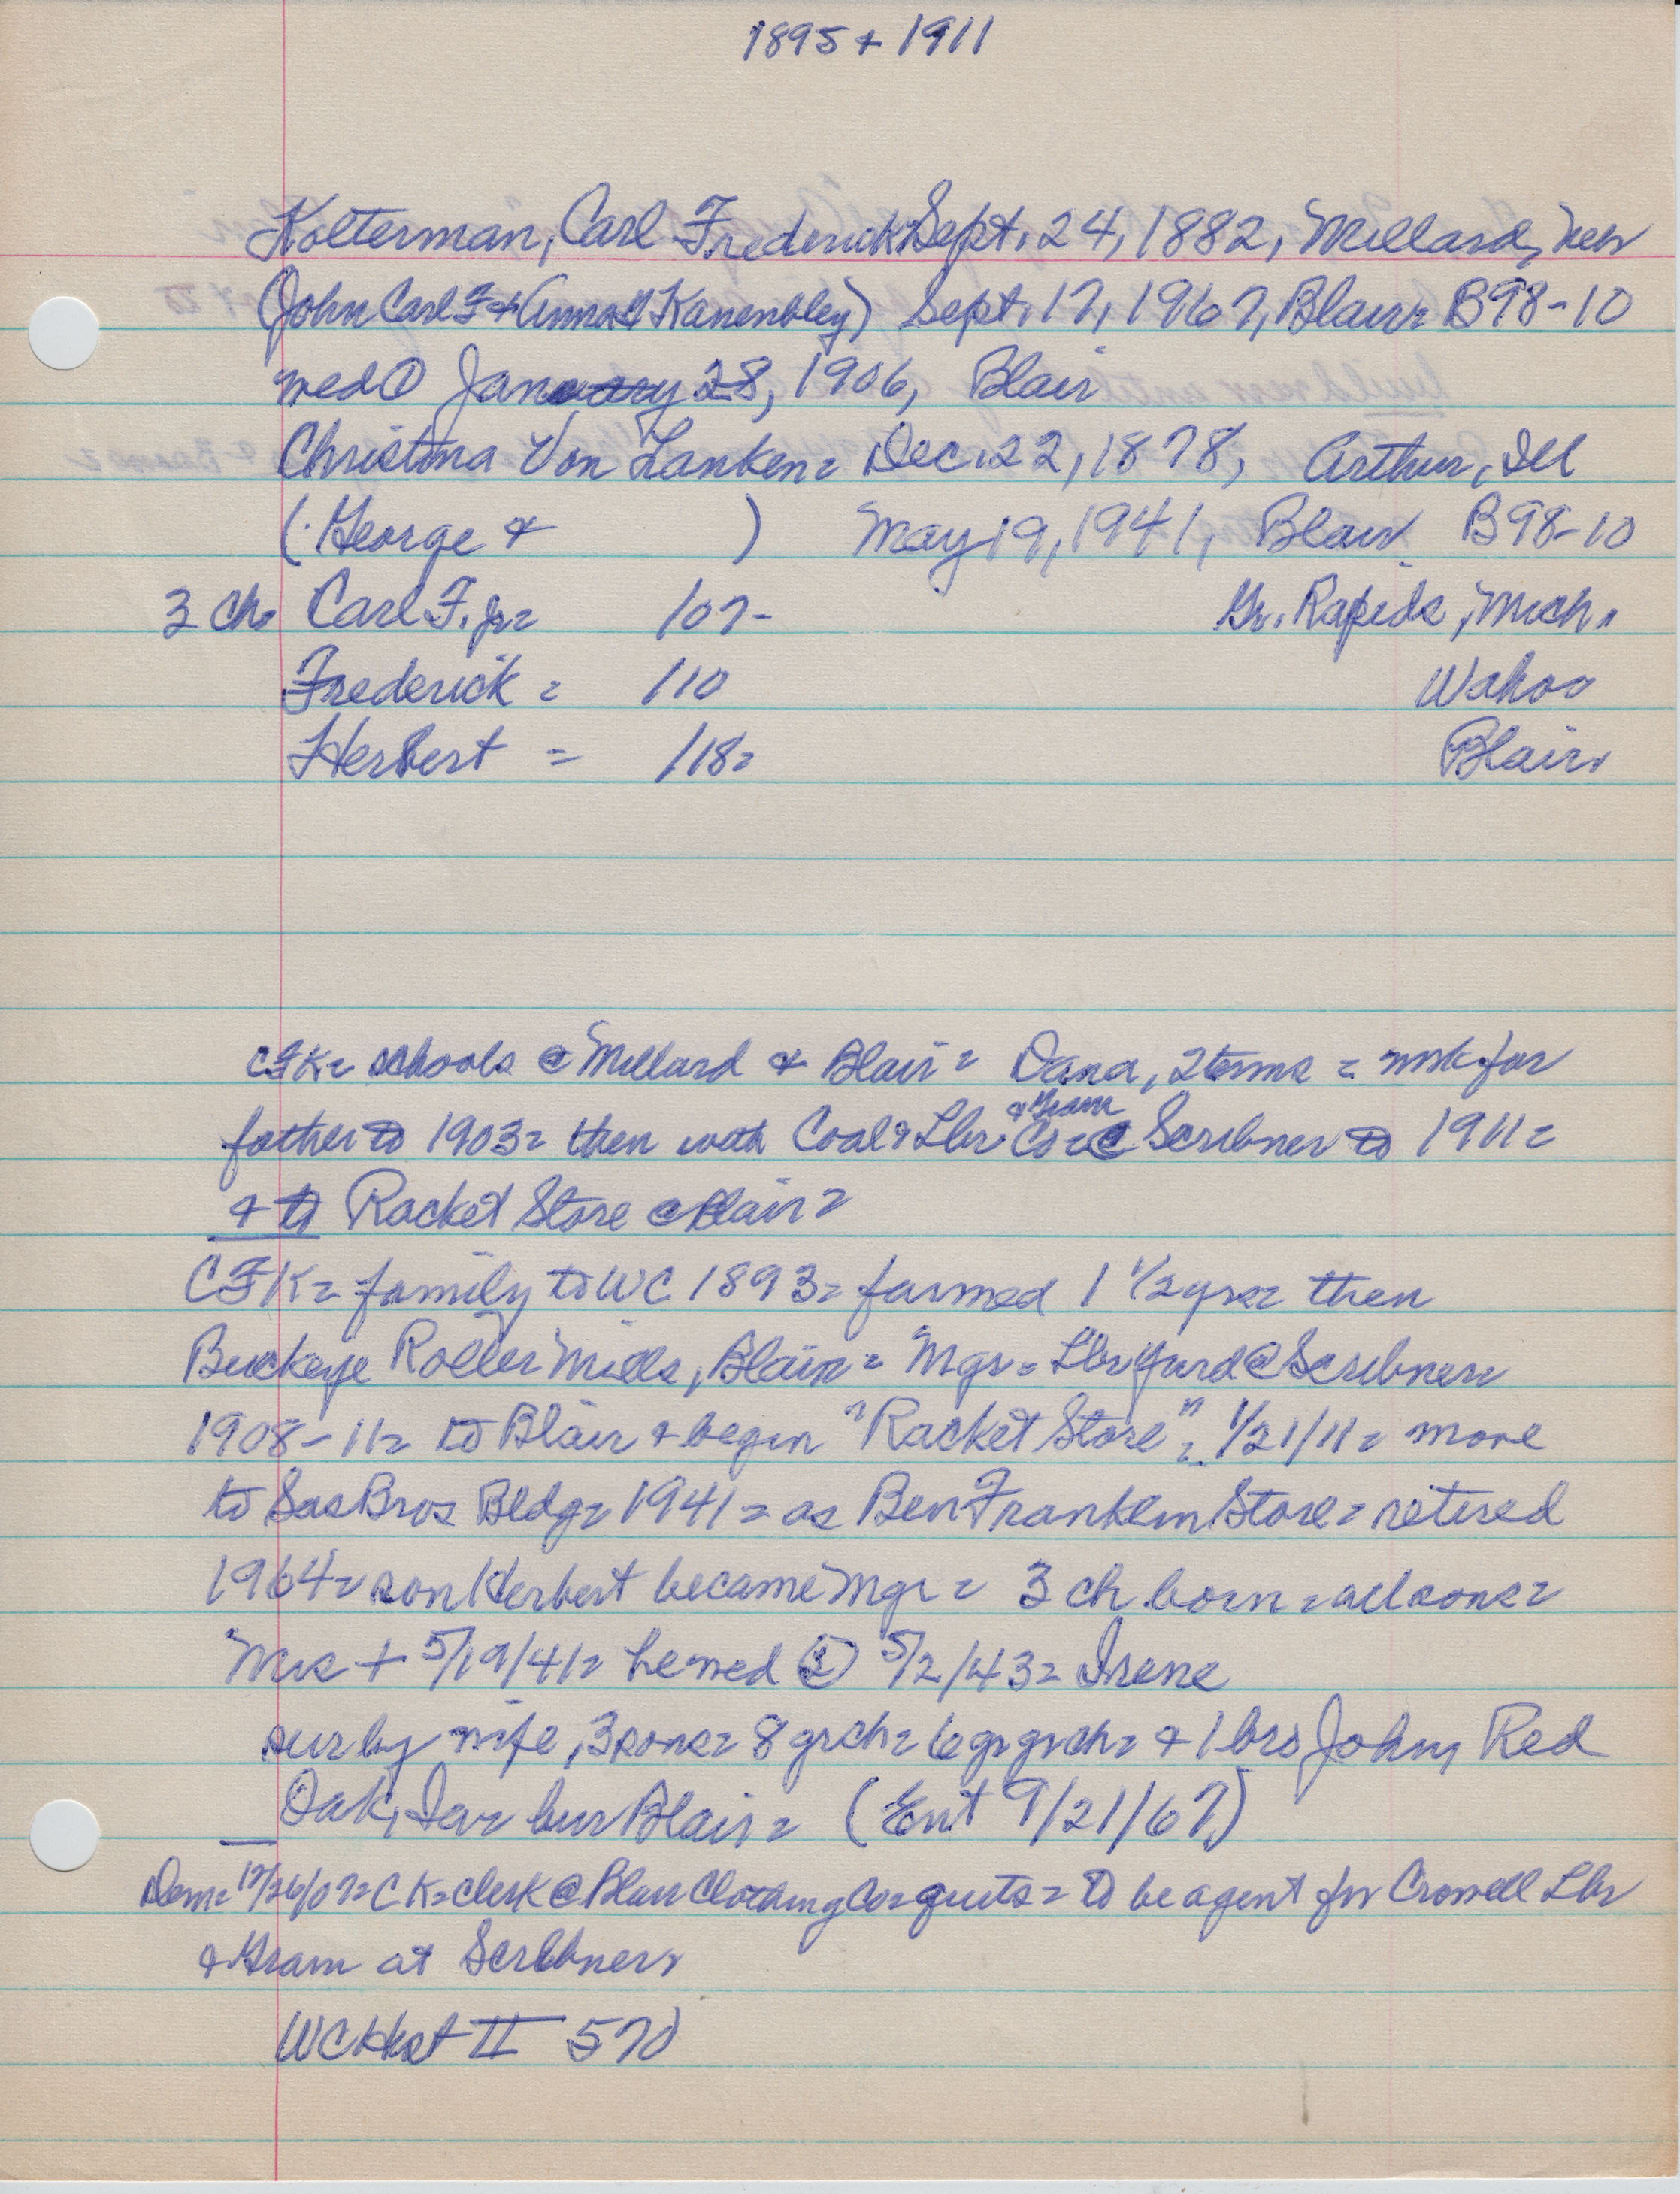 1895 + 1911
Kolterman, Carl Frederick= Sept. 24, 1882, Millard, Neb
(John Carl F + Anna Kanenbley) Sept. 17, 1967, Blair= B98-10
wed ① January 28, 1906, Blair
Christina Von Lanken= Dec. 22, 1878, Arthur, Ill
(George + ) May 19, 1941, Blair B98-10
3 ch= Carl F. Jr= 107- Gr. Rapids, Mich.
Frederick = 110 Wahoo
Herbert = 118= Blair=
CFK= schools @ Millard + Blair= Dana, 2 terms = work for
father to 1903= then with Coal & Lbr & Grain Co= @ Scribner to 1911=
+ to Racket Store @ Blair=
CFK= family to WC 1893= farmed 1 1/2 yrs= then
Buckeye Roller Mills, Blair= Mgr= Lbr Yard @ Scribner=
1908-11= to Blair + began "Racket Store"= 1/21/11= move
to Sas Bros Bldg= 1941= as Ben Franklin Store= retired
1964= son Herbert became Mgr= 3 ch born= all sons=
Mrs + 5/19/41= he wed ② 5/2/43= Irene
sur by wife, 3 sons= 8 grch= 6 gr grch= + 1 bro John, Red
Oak, Ia= bur Blair= (Ent 9/21/67)
Dem= 12/26/07= CK= clerk @ Blair Clothing Co= quits= to be agent for Crowell Lbr
+ Grain at Scribner=
WC Hist II 570